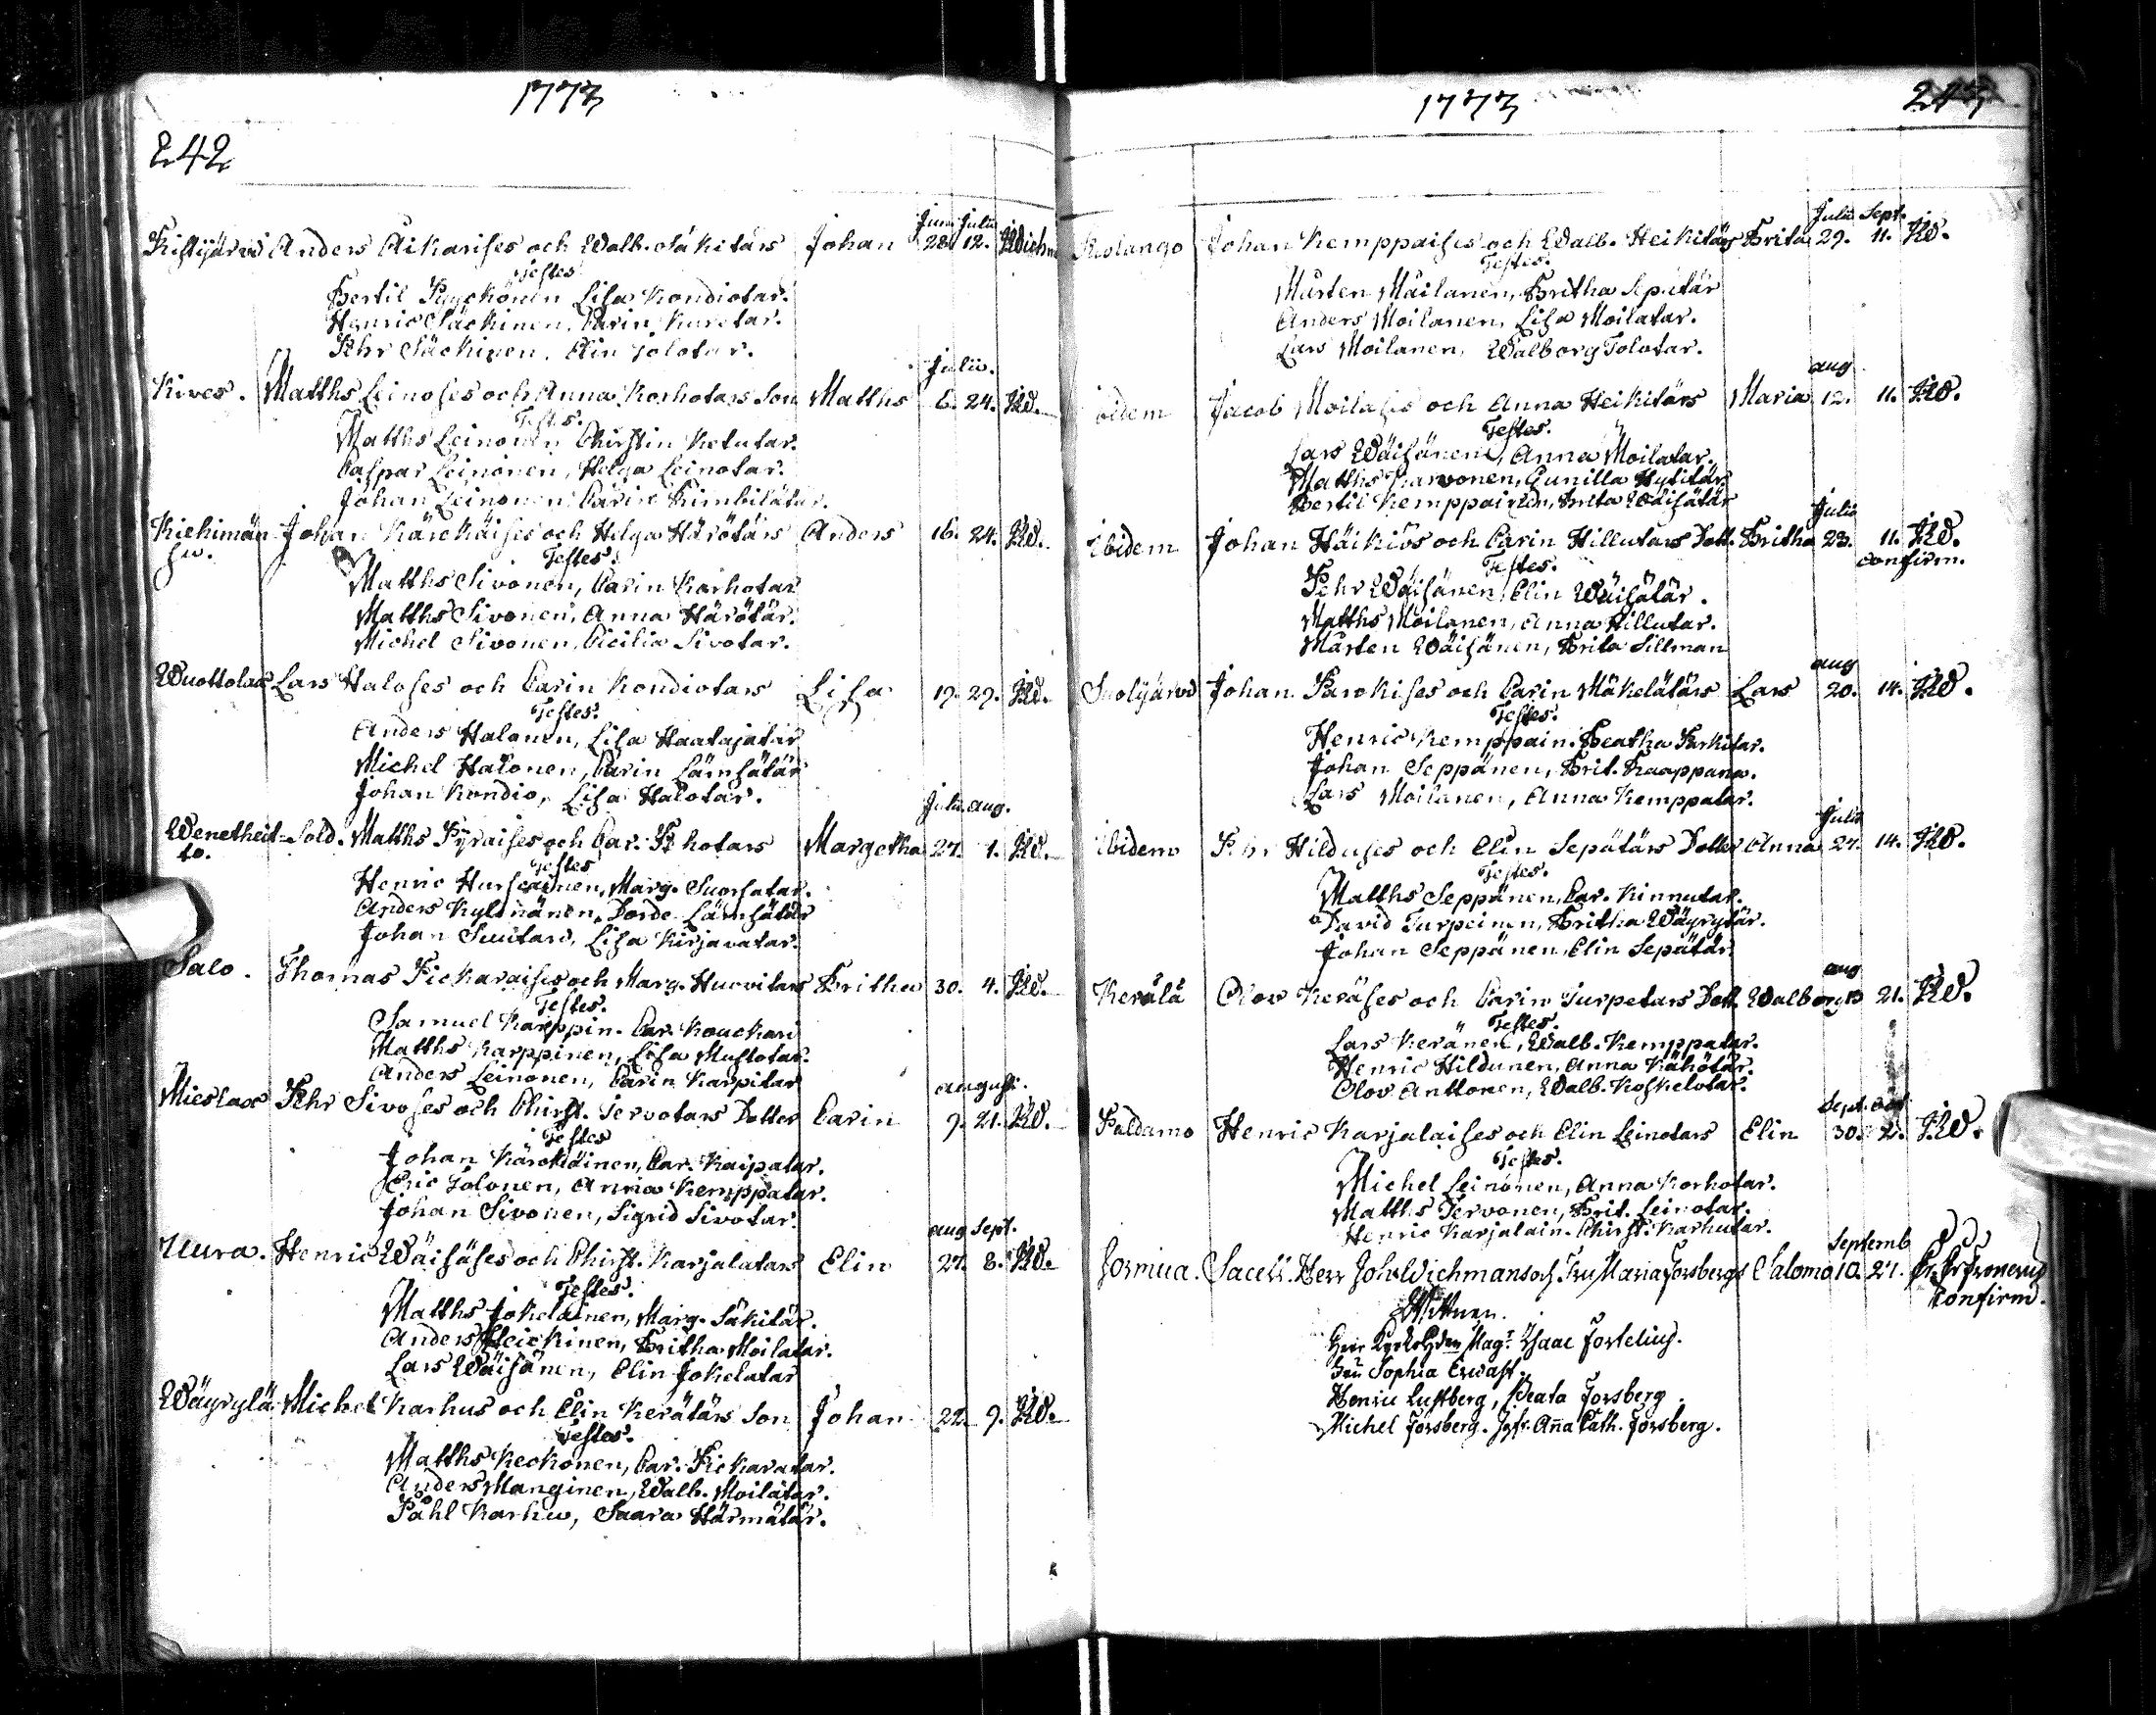 1773
242
Junii Julii
Kistijärvi Anders Aikarises och Walb. Säkitärs Johan 28. 12. Wichm
Testes
Bertil Pyyckönen Lisa Kondiotar.
Henric Säckinen, Carin Kuretar.
Pehr Säckinen, Elin Tolotar.
Julii.
Kives. Matths Leinoses och Anna Korhotars Son Matths 6. 24. Kd.
Testes.
Matths Leinonen Christin Ketutar.
Caspar Leinonen, Helga Leinotar.
Johan Leinonen Carin Kumbilatar.
Kiehimän Johan Kärckäises och Helga Härötärs Anders 16. 24. Kd.
su.
Testes.
Matths Sivonen, Carin Korhotar
Matths Sivonen, Anna Härötär.
Michel Sivonen, Cicilia Sivotar.
Wuottolax Lars Haloses och Carin Kondiotars Lisa 19. 29. Kd.
Testes.
Anders Halonen, Lisa Haatajatar
Michel Halonen, Carin Lämsätär
Johan Kondio, Lisa Halotar.
Julii aug.
Wenetheit- Sold. Matths Pyraises och Car. Pehotars Margetha 27. 1. Kd.
to.
Testes
Henric Hurscainen, Marg. Suorsatar.
Anders Kylmänen, Dorde Lämsätär
Johan Suutari, Lisa Kirjavatar.
Salo. Thomas Pickaraises och Marg. Huovitars Britha 30. 4. Kd.
Testes.
Samuel Karppin. Car. Kouckari
Matths Karppinen, Lisa Mustotar.
Anders Leinonen, Carin Karpitar
august.
Mieslax Pehr Sivoses och Christ. Tervotars Dotter Carin 9. 21. Kd.
Testes
Johan Kärckäinen, Car. Kaipatar.
Eric Tolonen, Anna Kemppatar.
Johan Sivonen, Sigrid Sivotar.
aug Sept.
Uura. Henric Wäisäses och Christ. Karjalatars Elin 27. 8. Kd.
Testes.
Matths Jokelainen, Marg. Säkitär.
Anders Heickinen, Britha Moilatar.
Lars Wäisänen, Elin Jokelatar
Wäyrylä Michel Karhus och Elin Kerätärs Son Johan 22. 9. Kd.
Testes.
Matths Keckonen, Car. Pickaratar.
Anders Manginen, Walb. Moilatar.
Påhl Karhu, Saara Härmätär.
1773
243
Julii Sept.
Kolango Johan Kemppaises och Walb. Heikitärs Brita 29. 11. Kd.
Testes.
Mårten Mäilanen, Britha Sepätär
Anders Moilanen, Lisa Moilatar.
Lars Moilanen, Walborg Tolotar.
aug
ibidem Jacob Moilases och Anna Heikitärs Maria 12. 11. Kd.
Testes.
Lars Wäisänen, Anna Moilatar.
Matths Karvonen, Gunilla Hytitär
Bertil Kemppainen, Brita Wäisätär
Julii
Ibidem Johan Häikiös och Carin Hillutars Dott. Britha 23. 11. Kd.
confirm.
Testes.
Pehr Wäisänen, Elin Wäisätär.
Matths Moilanen, Anna Hillutar.
Mårten Wäisänen, Brita Sillman
aug
Suolijärvi Johan Parckises och Carin Mäkelätärs Lars 20. 14. Kd.
Testes.
Henric Kemppain. Beatha Parkitar.
Johan Seppänen, Brit. Kaappana.
Lars Moilanen, Anna Kemppatar.
Julii
Ibidem Pehr Hilduses och Elin Sepätärs Dotter Anna 27. 14. Kd.
Testes.
Matths Seppänen, Car. Kinnutar.
David Turpeinen, Britha Wäyrytär.
Johan Seppänen, Elin Sepätär
aug
Kerälä Olov Keräses och Carin Turpetars Dott. Walborg 13 21. Kd.
Testes.
Lars Keränen, Walb. Kemppatar.
Henric Hildunen, Anna Kähötär.
Olov Anttonen, Walb. Koskelotar.
Sept. oct
Paldamo Henric Karjalaises och Elin Leinotars Elin 30. 2. Kd.
Testes.
Michel Leinonen, Anna Korhotar.
Matths Tervonen, Brit. Leinotar.
Henric Karjalain. Christ. Karhutar.
Septemb
Jormua. Sacell. Herr Joh. Wichmans och Fru Maria Forsbergs Salomo 10. 27.
Confirm.
Wittnen.
Herr Kyrkoherden Mag:r Isaac Fortelius.
Fru Sophia Erwast.
Henric Luftberg, Beata Forsberg.
Michel Forsberg. Jgfr. Anna Cath. Forsberg.